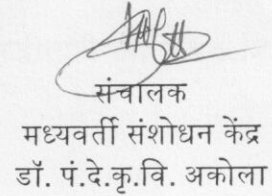 संचालक
मध्यवर्ती संशोधन केंद्र
डॉ. पं.दे.कृ.वि. अकोला